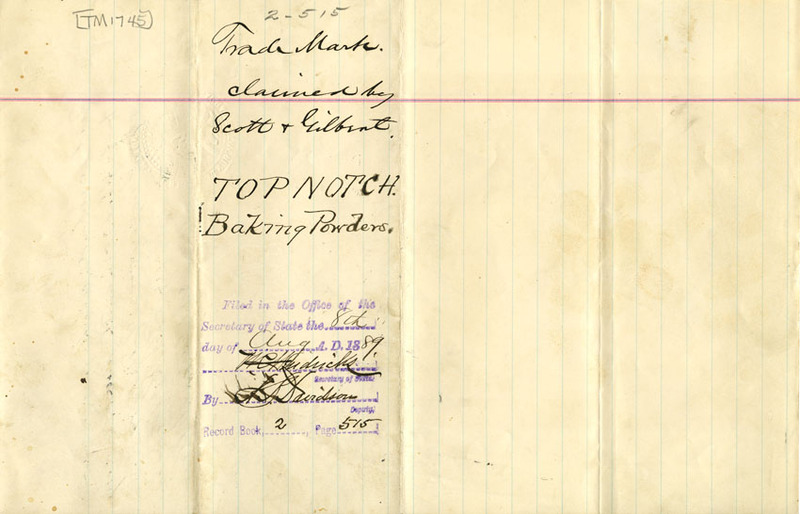 [TM1745]
2-515
Trade Mark.
claimed by
Scott & Gilbert.
TOP NOTCH.
Baking Powders.
Filed in the Office of the
Secretary of State the 8th
day of Aug A. D. 1889,
W C Hendricks
Secretary of State
By Davidson
Deputy,
Record Book, 2, Page 515